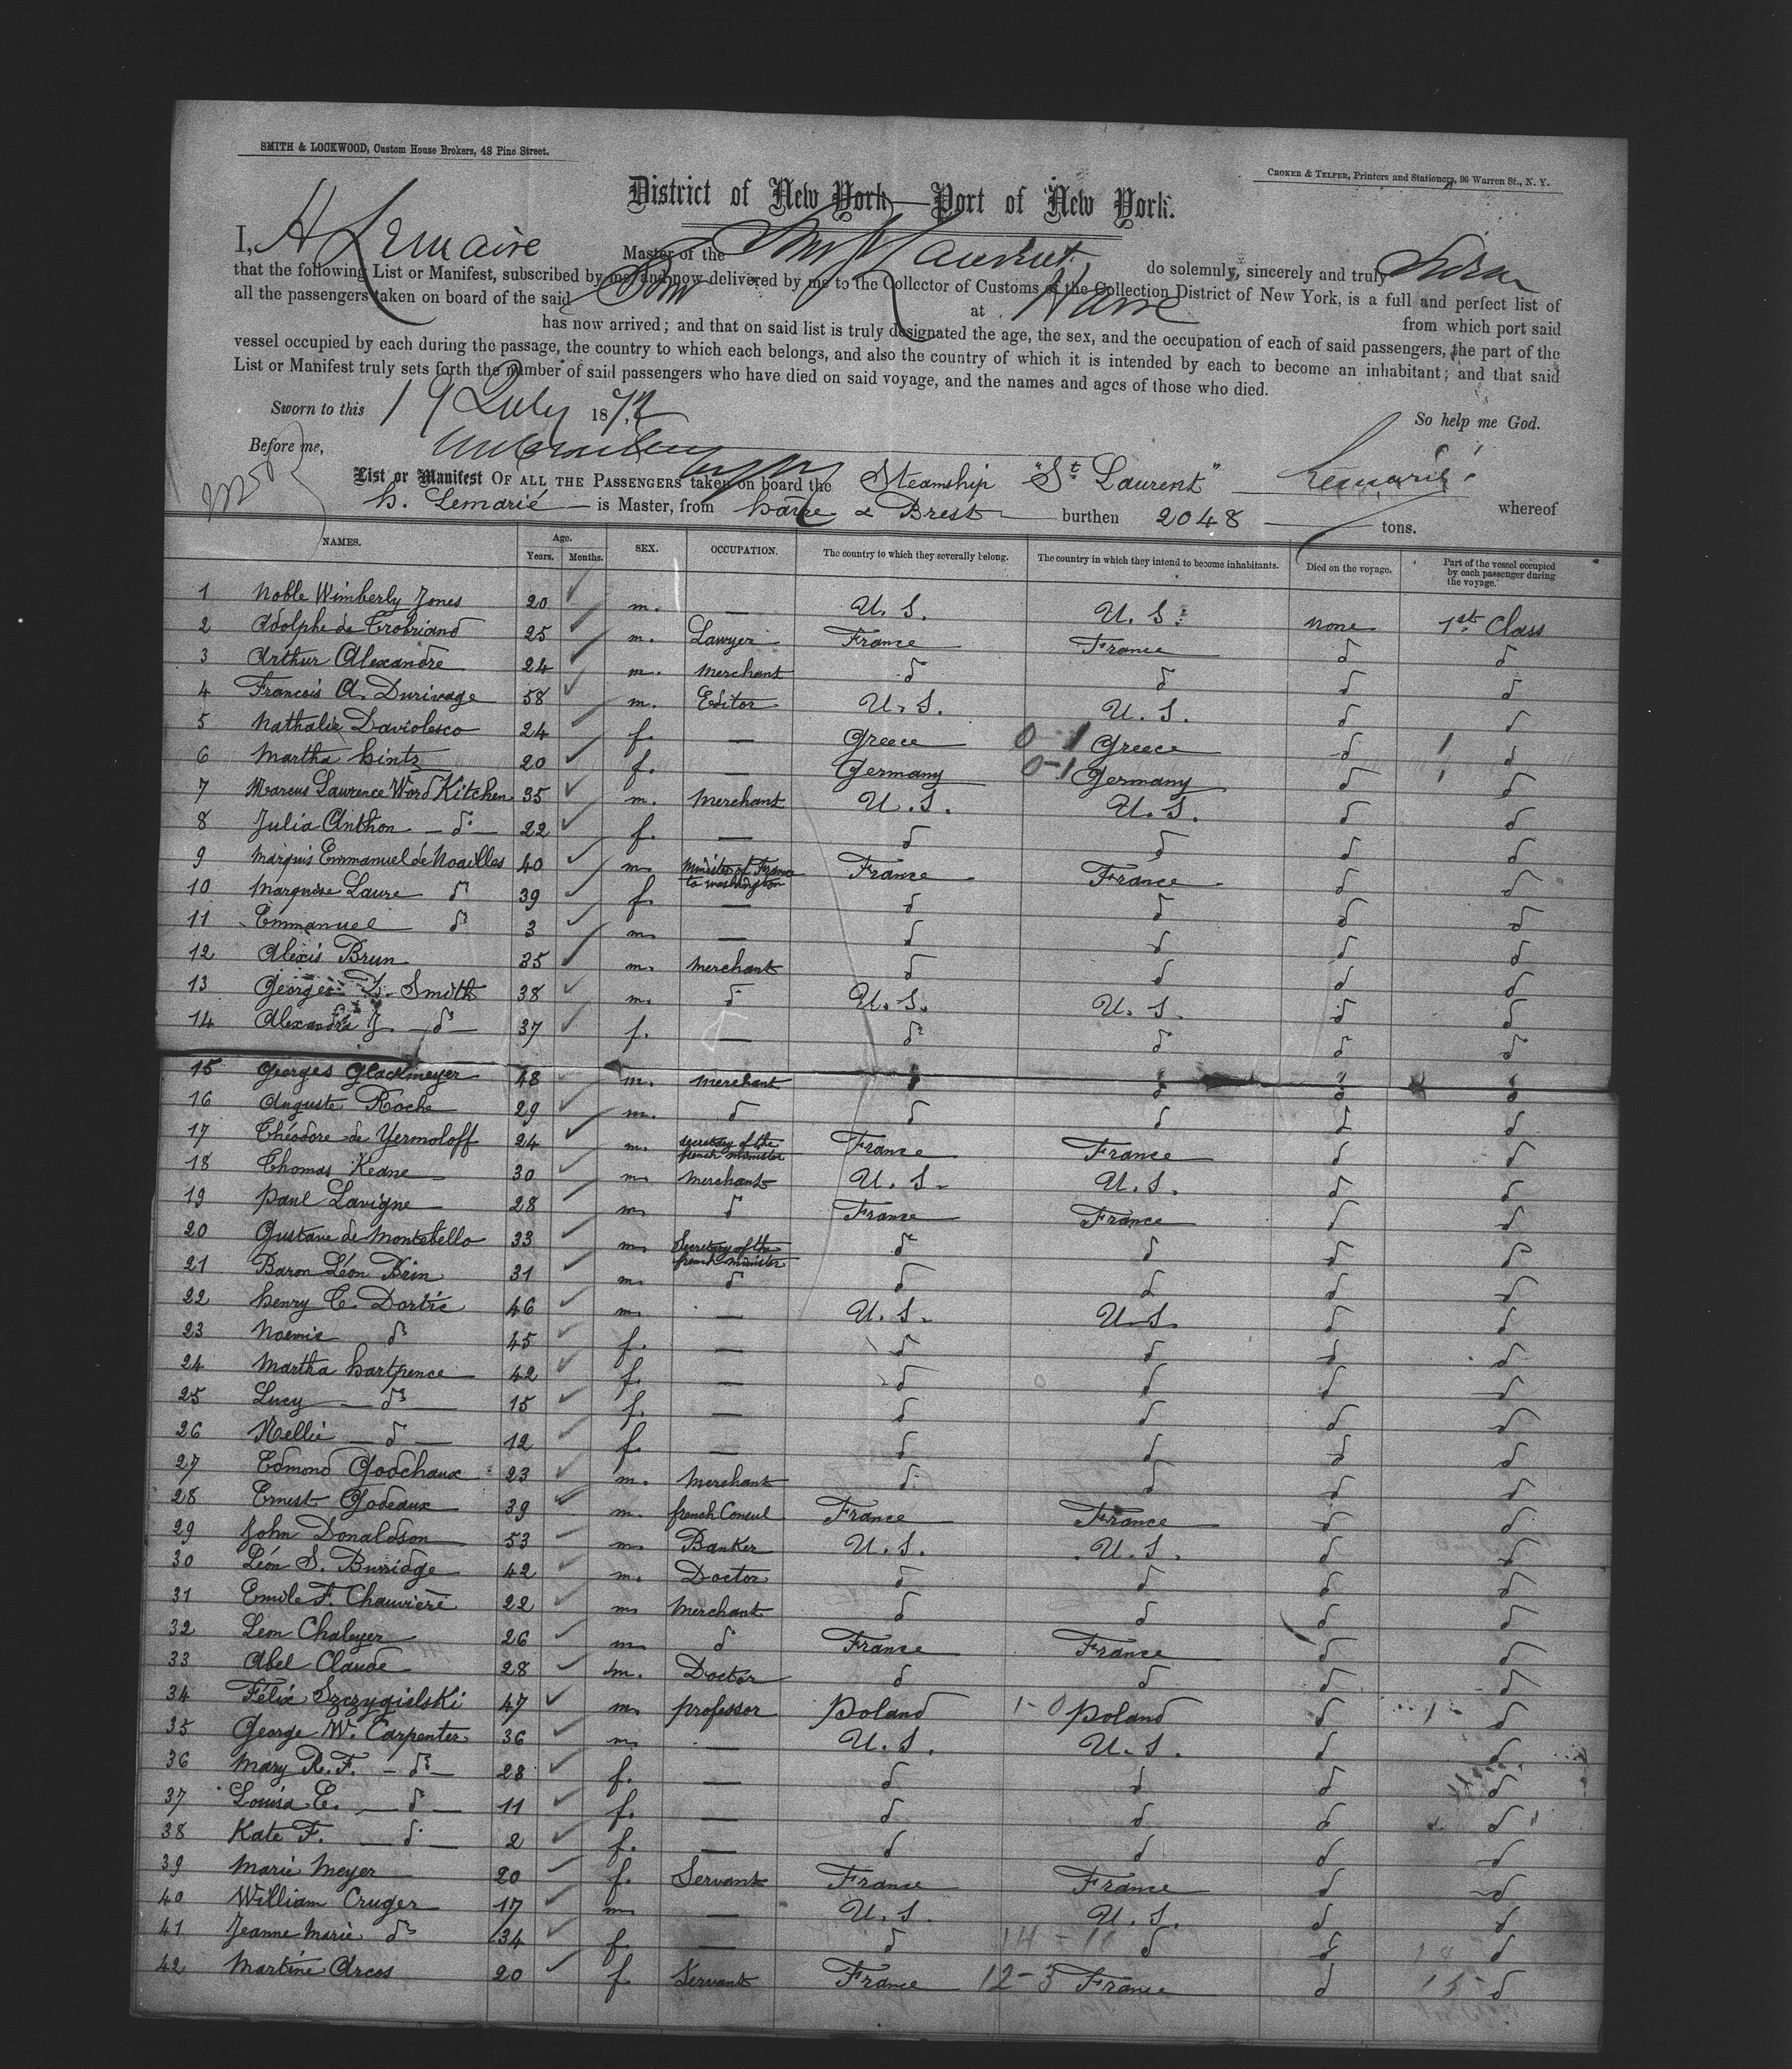 SMITH & LOCKWOOD, Custom House Brokers, 48 Pine Street.
CROKER & TELFER, Printers and Stationers, 96 Warren St., N. Y.
District of New York—Port of New York.
I, H Lemaire Master of the Str St Laurent do solemnly, sincerely and truly Swear
that the following List or Manifest, subscribed by me, and now delivered by me to the Collector of Customs of the Collection District of New York, is a full and perfect list of
all the passengers taken on board of the said Str at Havre from which port said
has now arrived; and that on said list is truly designated the age, the sex, and the occupation of each of said passengers, the part of the
vessel occupied by each during the passage, the country to which each belongs, and also the country of which it is intended by each to become an inhabitant; and that said
List or Manifest truly sets forth the number of said passengers who have died on said voyage, and the names and ages of those who died.
Sworn to this 19 July 1872 So help me God.
Before me,
List or Manifest OF ALL THE PASSENGERS taken on board the Steamship "St Laurent" whereof
h. Lemarié is Master, from havre & Brest burthen 2048 tons.
NAMES. Age. Years. Months. SEX. OCCUPATION. The country to which they severally belong. The country in which they intend to become inhabitants. Died on the voyage. Part of the vessel occupied by each passenger during the voyage.
1 Noble Wimberly Jones 20 m. — U. S. U. S. none 1st Class
2 Adolphe de Trobriand 25 m. Lawyer France France d d
3 Arthur Alexandre 24 m. merchant d d d d
4 Francois A. Durivage 58 m. Editor U. S. U. S. d d
5 Nathalie Daviolesco 24 f. — Greece 0 1 Greece d 1 d
6 Martha hintz 20 f. — Germany 0-1 Germany d 1 d
7 Marcus Laurence Word Kitchen 35 m. merchant U. S. U. S. d d
8 Julia Anthon — d — 22 f. — d d d d
9 Marquis Emmanuel de Noailles 40 m. minister of France to washington France France d d
10 Marquise Laure d 39 f. — d d d d
11 Emmanuel d 3 m. — d d d d
12 Alexis Brun 35 m. merchant d d d d
13 Georges D. Smith 38 m. d U. S. U. S. d d
14 Alexandra J. — d — 37 f. — d d d d
15 Georges Glackmeyer 48 m. merchant d d d d
16 Auguste Roche 29 m. d d d d d
17 Théodore de Yermoloff 24 m. secretary of the french minister France France d d
18 Thomas Keane 30 m. merchant U. S. U. S. d d
19 Paul Lavigne 28 m. d France France d d
20 Gustave de Montebello 33 m. Secretary of the french minister d d d d
21 Baron Léon Brin 31 m. d d d d d
22 henry C. Dortic 46 m. — U. S. U. S. d d
23 Noemie d 45 f. — d d d d
24 Martha hartpence 42 f. — d d d d
25 Lucy — d — 15 f. — d d d d
26 Nellie — d — 12 f. — d d d d
27 Edmond Godchaux 23 m. merchant d d d d
28 Ernest Godeaux 39 m. french Consul France France d d
29 John Donaldson 53 m. Banker U. S. U. S. d d
30 Léon S. Burridge 42 m. Doctor d d d d
31 Emile F. Chauvière 22 m. merchant d d d d
32 Leon Chaleyer 26 m. d France France d d
33 Abel Claude 28 m. Doctor d d d d
34 Félix Szczygielski 47 m. professor Poland 1-0 Poland d 1 - d
35 George W. Carpenter 36 m. — U. S. U. S. d d
36 Mary R. F. — d — 28 f. — d d d d
37 Louisa E. — d — 11 f. — d d d d
38 Kate F. — d — 2 f. — d d d d
39 Marie Meyer 20 f. Servant France France d d
40 William Cruger 17 m. — U. S. U. S. d d
41 Jeanne Marie d 34 f. — d d d d
42 Martine Arcos 20 f. Servant France 12-3 France d 15 d